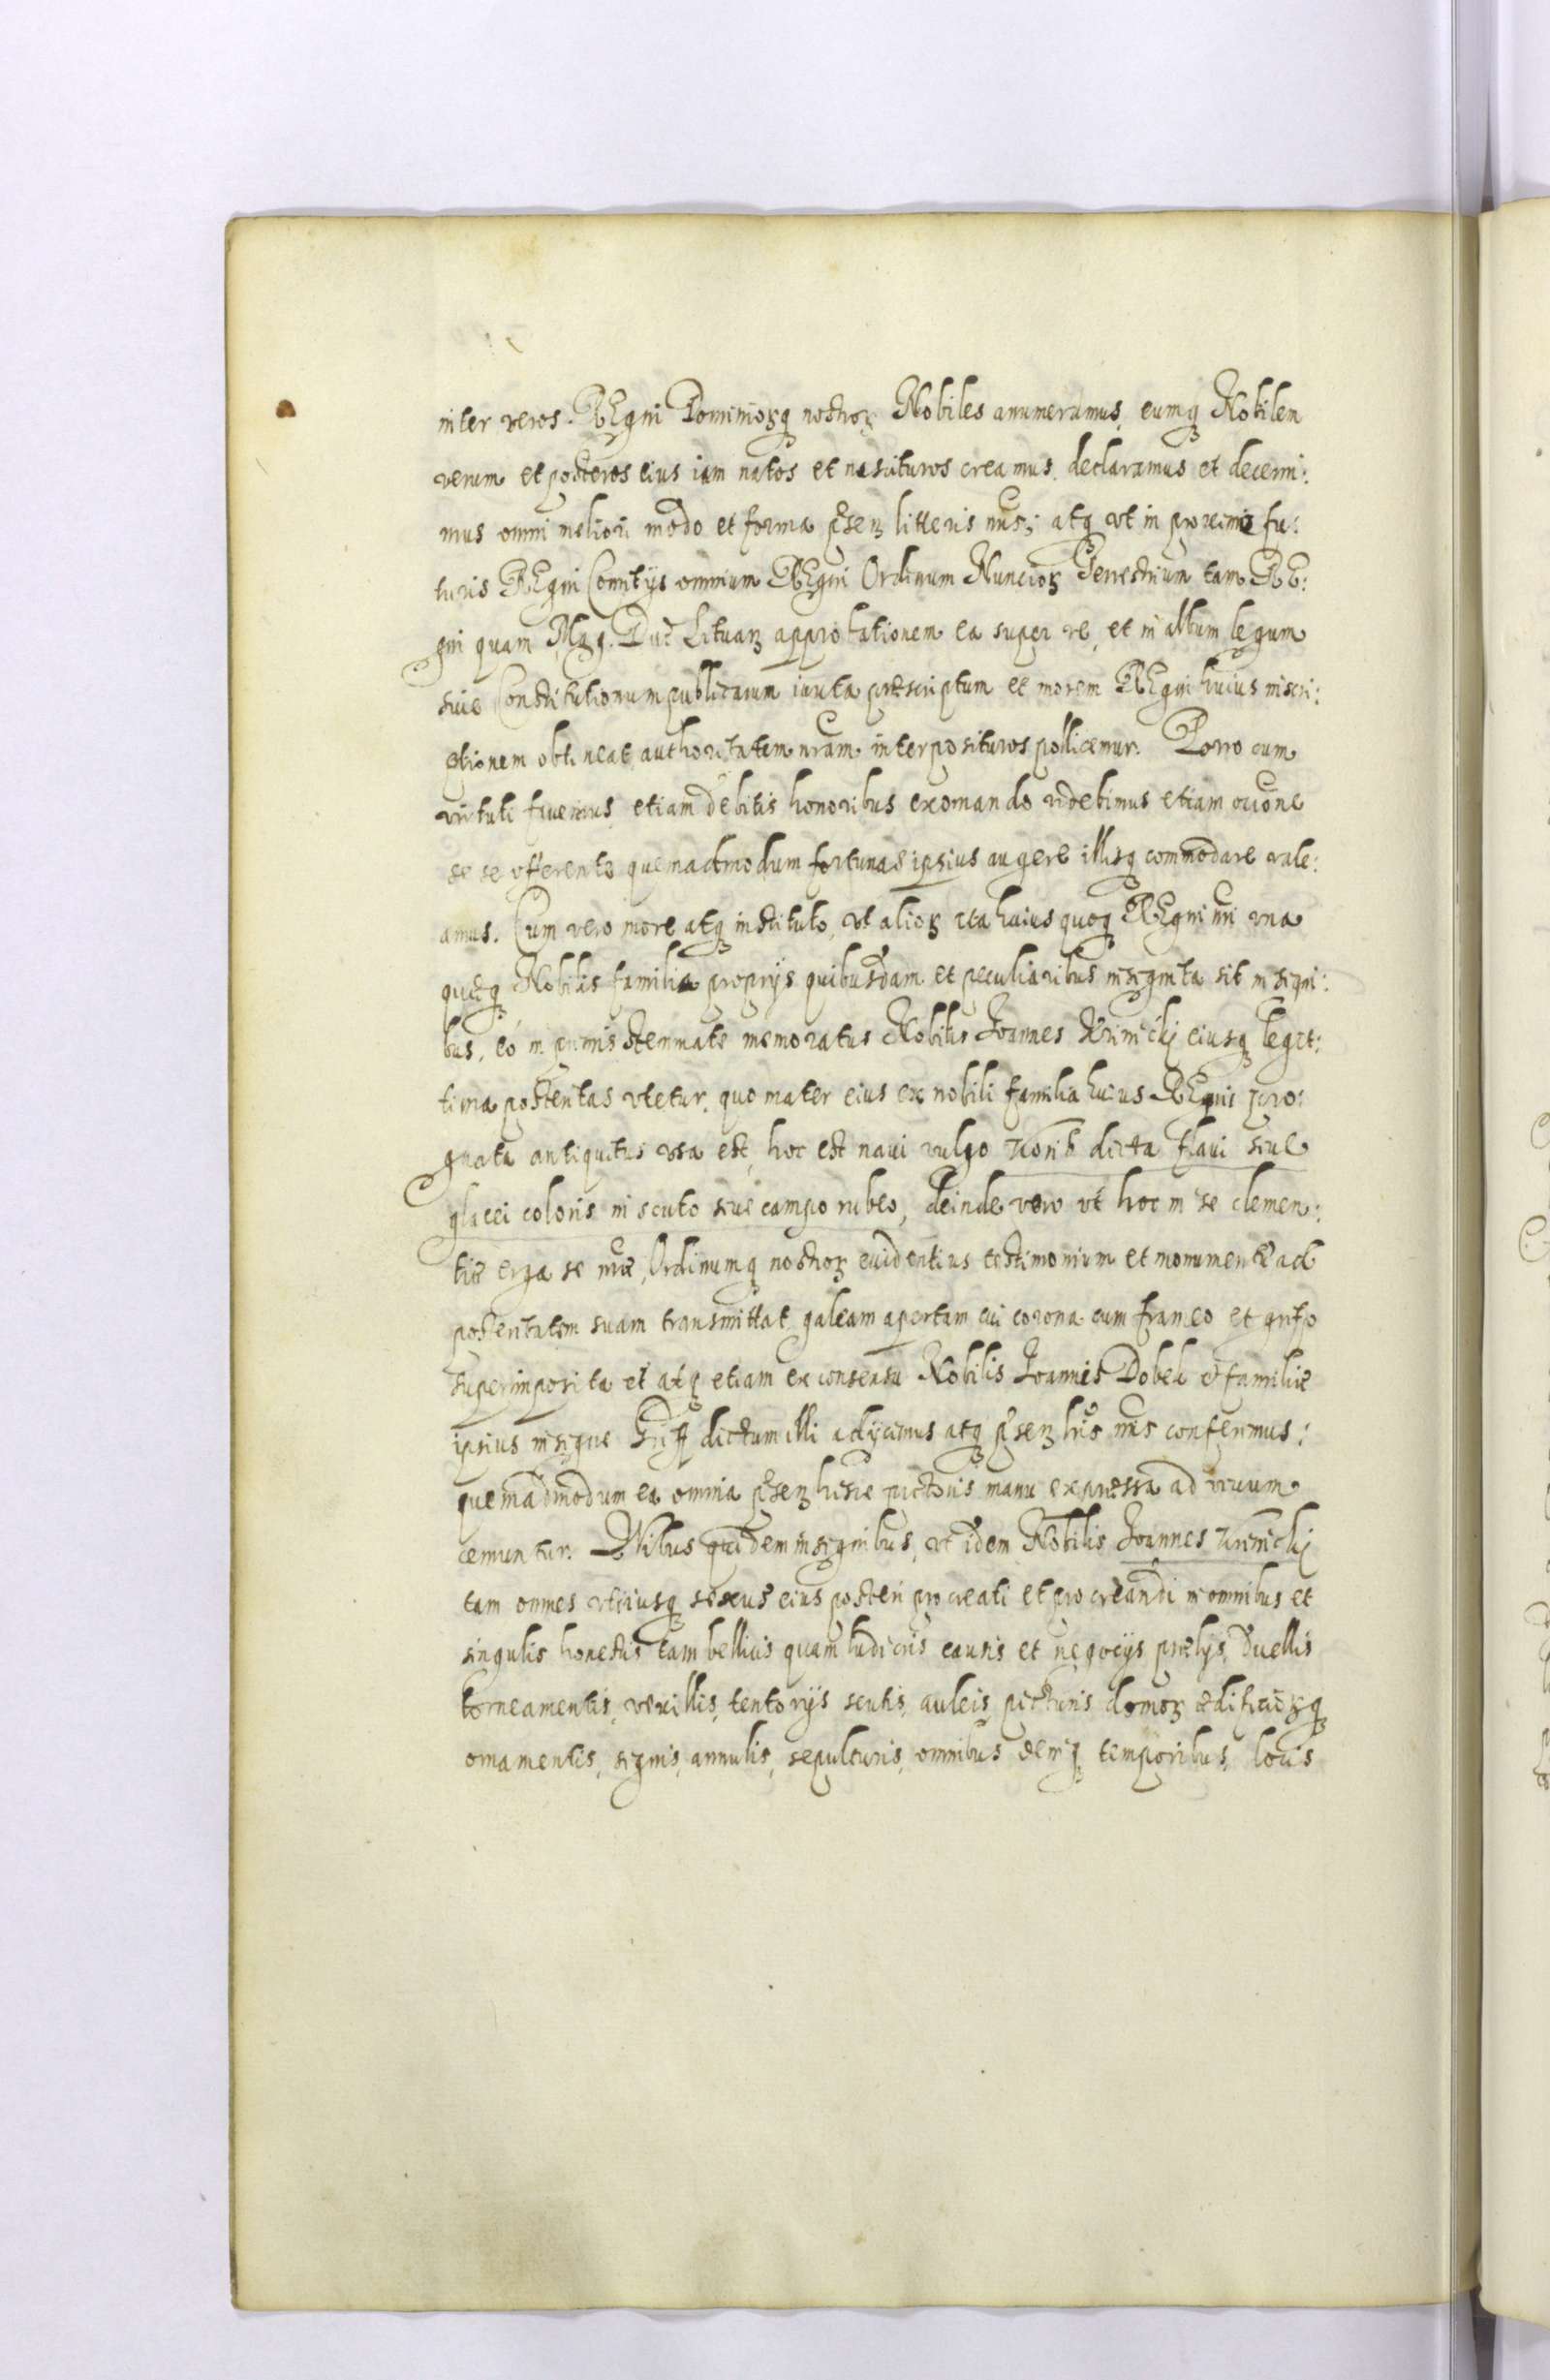 inter veros REgni Dominiorꝫq nostrorꝫ Nobiles annumeramus, eumqꝫ Nobilem
verum et posteros eius iam natos et nascituros creamus, declaramus et decerni:
mus omni meliori modo et forma pñsenꝫ litteris nris; atqꝫ vt in proximè fu:
turis REgni Comitijs omnium REgni Ordinum Nunciorꝫ Terrestrium tam RE:
gni quam Mag. Duc Lituaꝫ approbationem ea super re, et in album legum
siue Constitutionum publicarum iuxta præscriptum et morem REgni huius inscri:
ptionem obtineat authoritatem nram interposituros pollicemur. Porro cum
virtuti fauemus, etiam debitis honoribus exornando videbimus etiam occone
se se offerente quemadmodum fortunas ipsius augere illisqꝫ commodare vale:
amus. Cum vero more atqꝫ instituto, vt aliorꝫ ita huius quoqꝫ REgni nri vna
quæqꝫ Nobilis familia proprijs quibusdam et peculiaribus insignita sit insigni:
bus, eo in primis stemmate memoratus Nobilis Joannes eiusqꝫ legit:
tima posteritas vtetur, quo mater eius ex nobili familia huius REgnis pro:
gnata antiquitus vsa est, hoc est naui vulgo Korab dicta flaui siue
glacei coloris in scuto siue campo rubeo, deinde vero vt hoc in se clemen:
tiæ erga se nræ, Ordinumqꝫ nostrorꝫ euidentius testimonium et monumentũ ad
posteritatem suam transmittat, galeam apertam cui corona cum et grifo
superimposita et atqꝫ etiam ex consensu Nobilis Joannis Dobek et familiæ
ipsius insigne Griff dictum illi adijcimus atqꝫ pñsenꝫ lris nris conferimus:
quemadmodum ea omnia pñsenꝫ hisce pictoris manu expressa ad viuum
cernuntur. Quibus quidem insignibus, vt idem Nobilis Joannes
tam omnes vtriusqꝫ sexus eius posteri procreati et procreandi in omnibus et
singulis honestis tam bellicis quam ludicris causis et negocijs prælijs, duellis
torneamentis, vexillis, tentorijs scutis, auleis, picturis domorꝫ ædificiorꝫqꝫ
ornamentis, signis, annulis, sepulturis, omnibus deniqꝫ temporibus, locis